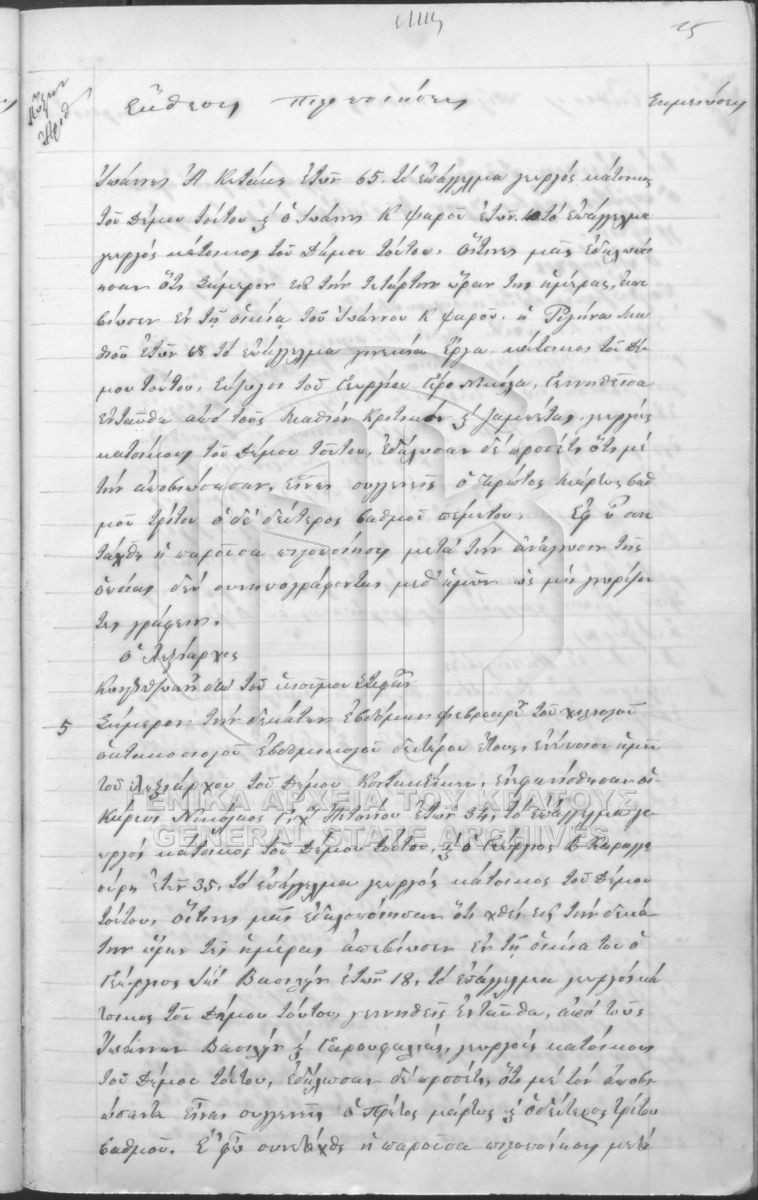 15
Αὔξων
Ἀριθ
Ἔκθεσις πιστοποιήσεως
Σημειώσεις
Ἰωάννης Κετάκης ἐτῶν 65. τὸ ἐπάγγελμα γεωργὸς κάτοικος
τοῦ Δήμου τούτου ὁ Ἰωάννης Κ Ψαροῦ ἐτῶν τὸ ἐπάγγελμα
γεωργὸς κάτοικος τοῦ Δήμου τούτου. οἵτινες μᾶς ἐδηλοποίη
σαν ὅτι Σήμερον εἰς τὴν τετάρτην ὥραν τῆς ἡμέρας, ἀπε
βίωσεν ἐν τῇ οἰκίᾳ τοῦ Ἰωάννου Κ Ψαροῦ. ἡ Ῥιγήνω Μα
θιοῦ ἐτῶν 68 τὸ ἐπάγγελμα γυνεκία ἔργα. κάτοικος τοῦ Δή
μου τούτου, σύζυγος τοῦ Γεωργίου Γερο Νικόλα, Γεννηθεῖσα
ἐνταῦθα ἀπὸ τοὺς Μαθιὸν Κριτικὸν γεωργοὺς
κατοίκους τοῦ Δήμου τούτου, ἐδήλωσαν δὲ προσέτι ὅτι μὲ
τὴν ἀποβιώσασαν, εἶναι συγγενεῖς ὁ πρῶτος μάρτυς βαθ
μοῦ τρίτου ὁ δὲ δεύτερος βαθμοῦ πέμπτου. Ἐφ ᾧ συν
τάχθη ἡ παροῦσα πιστοποίησις μετὰ τὴν ἀνάγνωσιν τῆς
ὁποίας δὲν συνυπογράφονται μεθ ἡμῶν ὡς μὴ γνωρίζον
τες γράφειν.
ὁ Ληξίαρχος
5
Σήμερον τὴν δεκάτην ἑβδόμην φεβρουαρίου τοῦ χιλιοστοῦ
ὀκτακοσιοστοῦ ἑβδομηκοστοῦ δευτέρου ἔτους, ἐνώπιον ἐμοῦ
τοῦ Ληξιάρχου τοῦ Δήμου ἐνεφανίσθησαν οἱ
Κύριοι Νικόλαος ἐτῶν 34, τὸ ἐπάγγελμα γε
ωργὸς κάτοικος τοῦ Δήμου τούτου, ὁ Γεώργιος
ἐτῶν 35. τὸ ἐπάγγελμα γεωργὸς κάτοικος τοῦ Δήμου
τούτου, οἵτινες μᾶς ἐδηλοποίησαν ὅτι χθὲς εἰς τὴν δεκά
την ὥραν τῆς ἡμέρας ἀπεβίωσεν ἐν τῇ οἰκίᾳ του ὁ
Γεώργιος Ἰω Βασιλῆς ἐτῶν 18, τὸ ἐπάγγελμα γεωργὸς κά
τοικος τοῦ Δήμου τούτου, γεννηθεὶς ἐνταῦθα, ἀπὸ τοὺς
Ἰωάννην Βασιλῆν Γαρουφαλιάς, γεωργοὺς κατοίκους
τοῦ Δήμου τούτου, ἐδήλωσαν δὲ προσέτι, ὅτι μὲ τὸν ἀποβι
ώσαντα εἶναι συγγενεῖς ὁ πρῶτος μάρτυς ὁ δεύτερος τρίτου
βαθμοῦ. Ἐφ ᾧ συνετάχθη ἡ παροῦσα πιστοποίησις μετὰ
ΓΕΝΙΚΑ ΑΡΧΕΙΑ ΤΟΥ ΚΡΑΤΟΥΣ
GENERAL STATE ARCHIVES